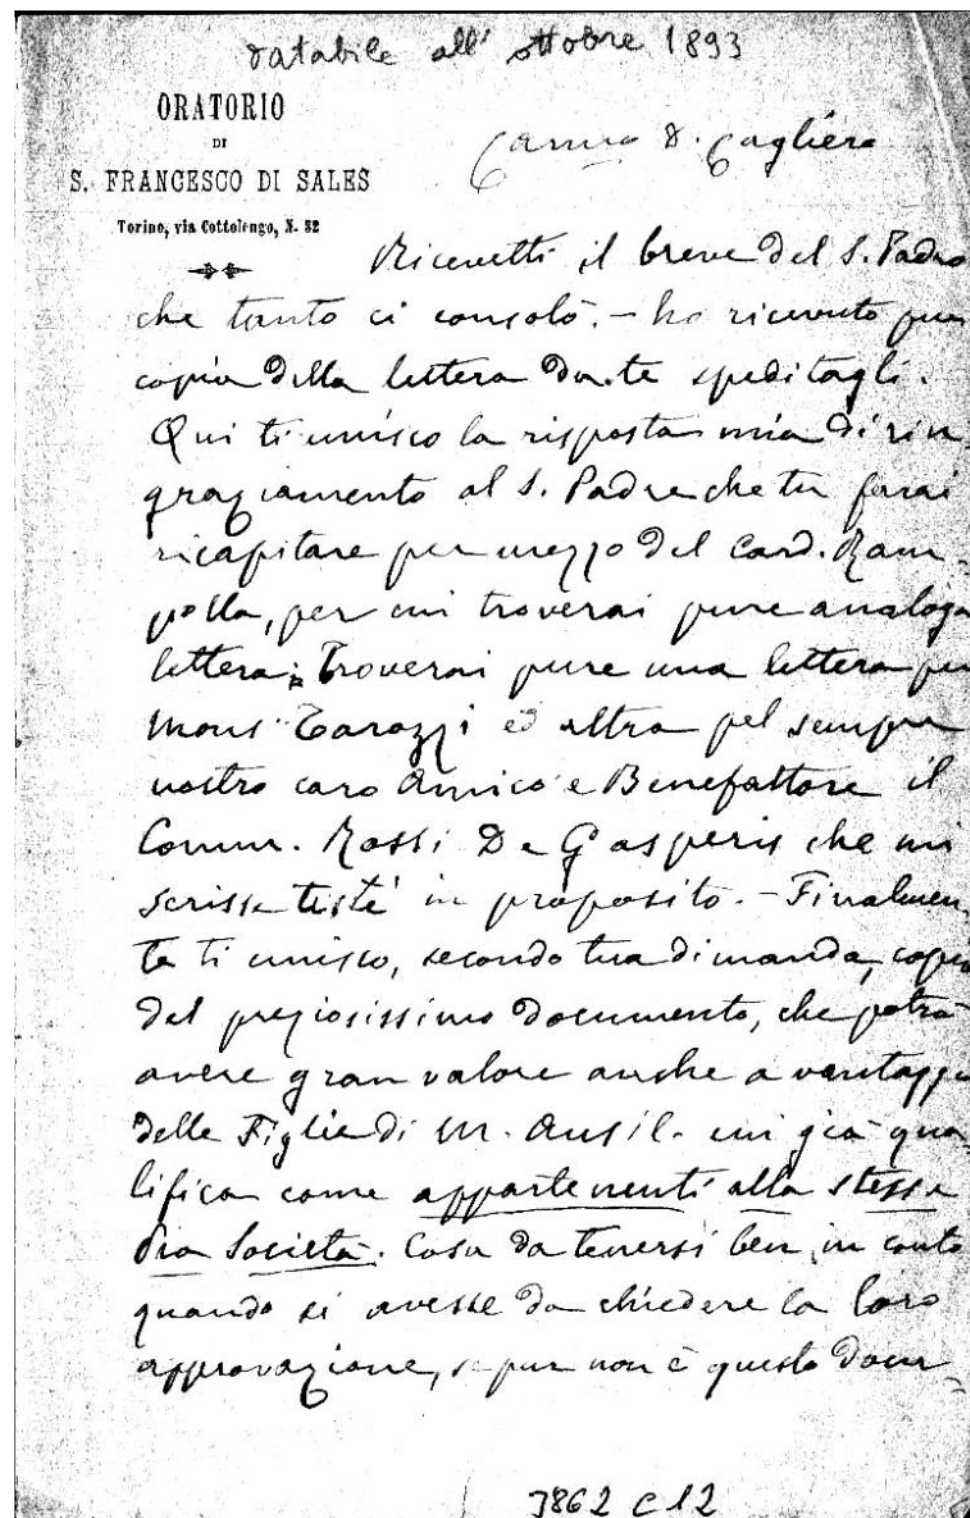 databile all' ottobre 1893
ORATORIO
DI
S. FRANCESCO DI SALES
Torino, via Cottolengo, N. 32
Car.mo D. Cagliero
Ricevetti il breve del S. Padre
che tanto ci consolò. – ho ricevuto pur
copia della lettera da te speditagli.
Qui ti unisco la risposta mia di rin
graziamento al S. Padre che tu farai
ricapitare per mezzo del Card. Ram-
polla, per cui troverai pure analoga
lettera; Troverai pure una lettera per
Mons. Tarozzi ed altra pel sempre
nostro caro Amico e Benefattore il
Comm. Rossi De Gasperis che mi
scrisse testé in proposito. – Finalmen
te ti unisco, secondo tua dimanda, copia
del preziosissimo documento, che potrà
avere gran valore anche a vantaggio
delle Figlie di M. Ausil. cui già qua-
lifica come appartenenti alla stessa
Pia Società. Cosa da tenersi ben in conto
quando si avesse da chiedere la loro
approvazione, se pur non è questo docu-
3862 C 12